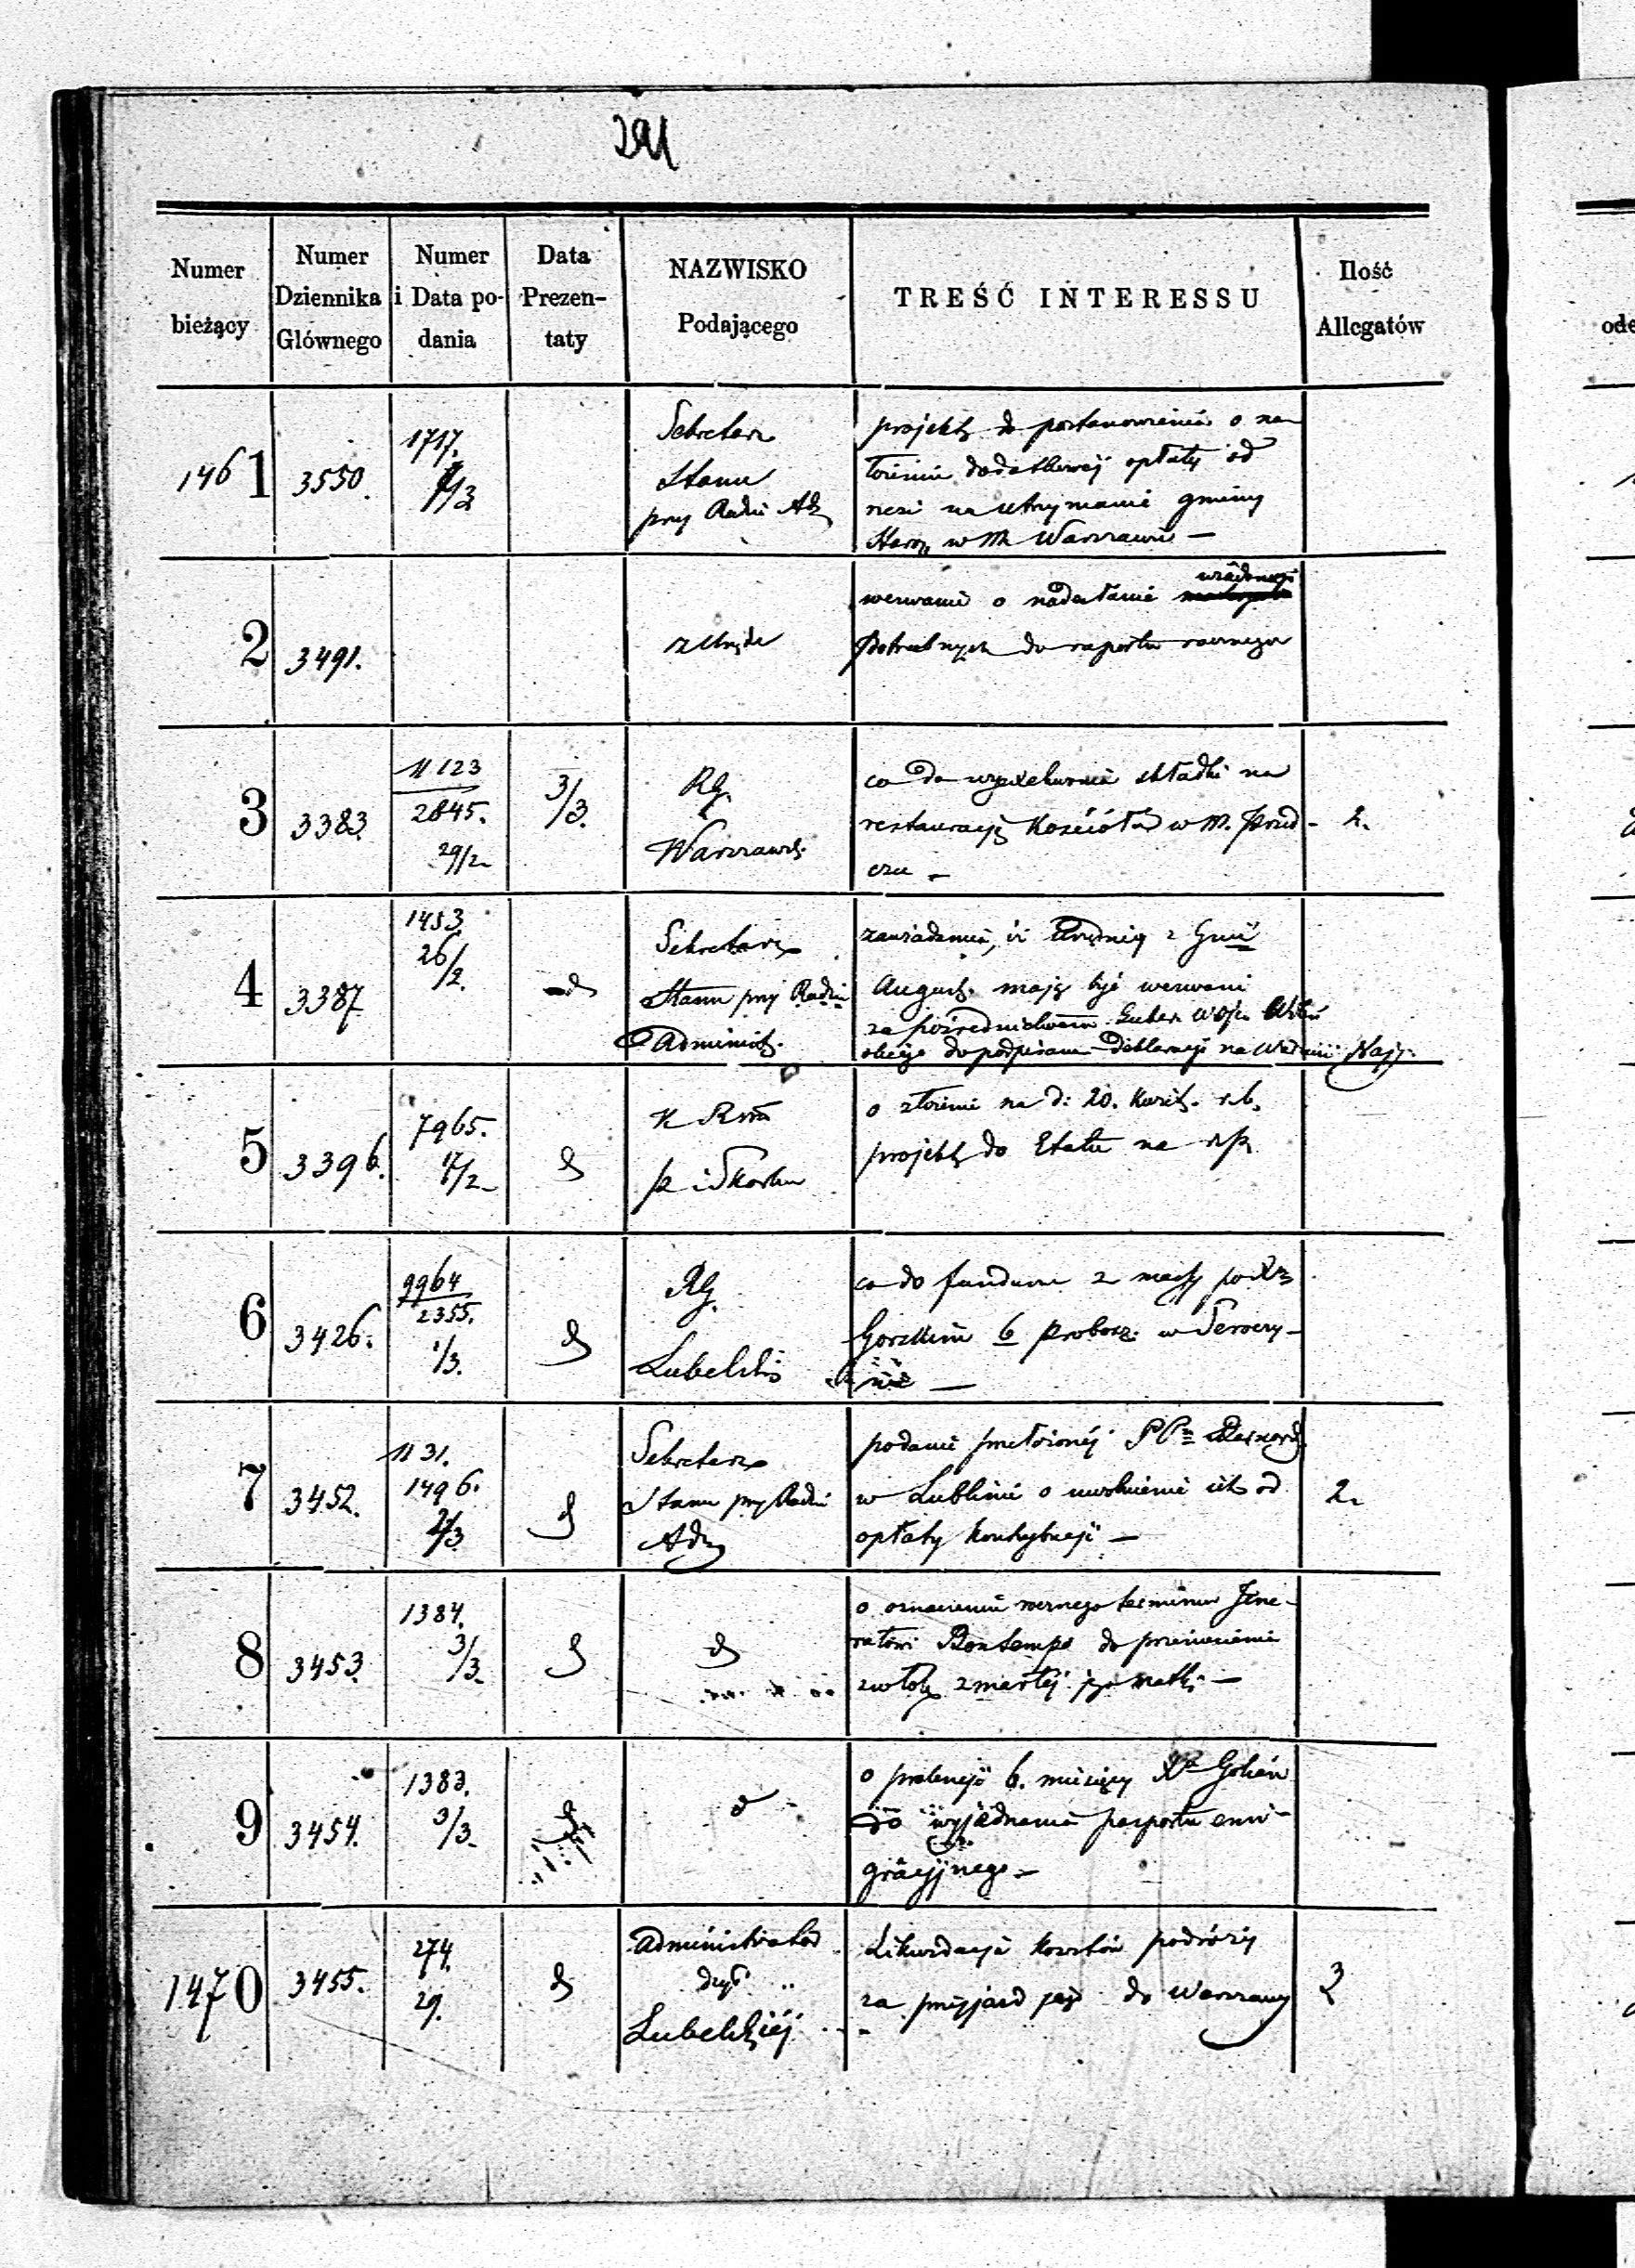 291
Numer bieżący
Numer Dziennika Głównego
Numer i Data podania
Data Prezentaty
NAZWISKO Podającego
TREŚĆ INTERESSU
Ilość Allegatów
1461
3550.
1717.
/3
Sekretarz
Stanu
przy Radzie Ad
projekt do postanowienia o na
łożeniu dodatkowej opłaty od
rzezi na utrzymanie gminy
Staroz. w M. Warszawie —
2
3491.
z Urzędu
wezwanie o nadesłanie wiadomości
potrzebnych do raportu rocznego
3
3383.
11123
2845.
29/2
3/3.
RG.
Warszaws.
co do wyexekwowania składki na
restauracyę Kościoła w M. Przed-
czu —
2.
4
3387
1453.
26/2.
d
Sekretarz
Stanu przy Radzie
Administ.
zawiadamia, iż Urzędnicy z Gub
August. mają być wezwani
za pośrednictwem Guber
do podpisania Deklaracyi na
5
3396.
7965.
17/2
d
K R
P. i Skarbu
o złożenie na d: 20. Kwiet. r.b.
projekt do Etatu na r.
6
3426.
9964
2355.
1/3.
d
RG.
Lubelski
co do funduszu z massy po X
Gorzkim b. Probosz. w
—
7
3452.
1131.
1496.
2/3
d
Sekretarz
Stanu przy Radzie
Ad
podanie przełożonej PP
w Lublinie o uwolnienie ich od
opłaty kontrybucyi —
2.
8
3453.
1384.
3/3
d
d
o oznaczenie nowego terminu Jene-
rałowi Bontemps do przeniesienia
zwłok zmarłej jego matki —
9
3454.
1383.
3/3
d
d
o prolongę 6. miesięcy Xa Golian
do wyjednania pasportu emi-
gracyjnego —
1470
3455.
274.
29.
d
Administrator
dyec.
Lubelskiej
Likwidacya kosztów podróży
za przyjazd jego do Warszawy
2